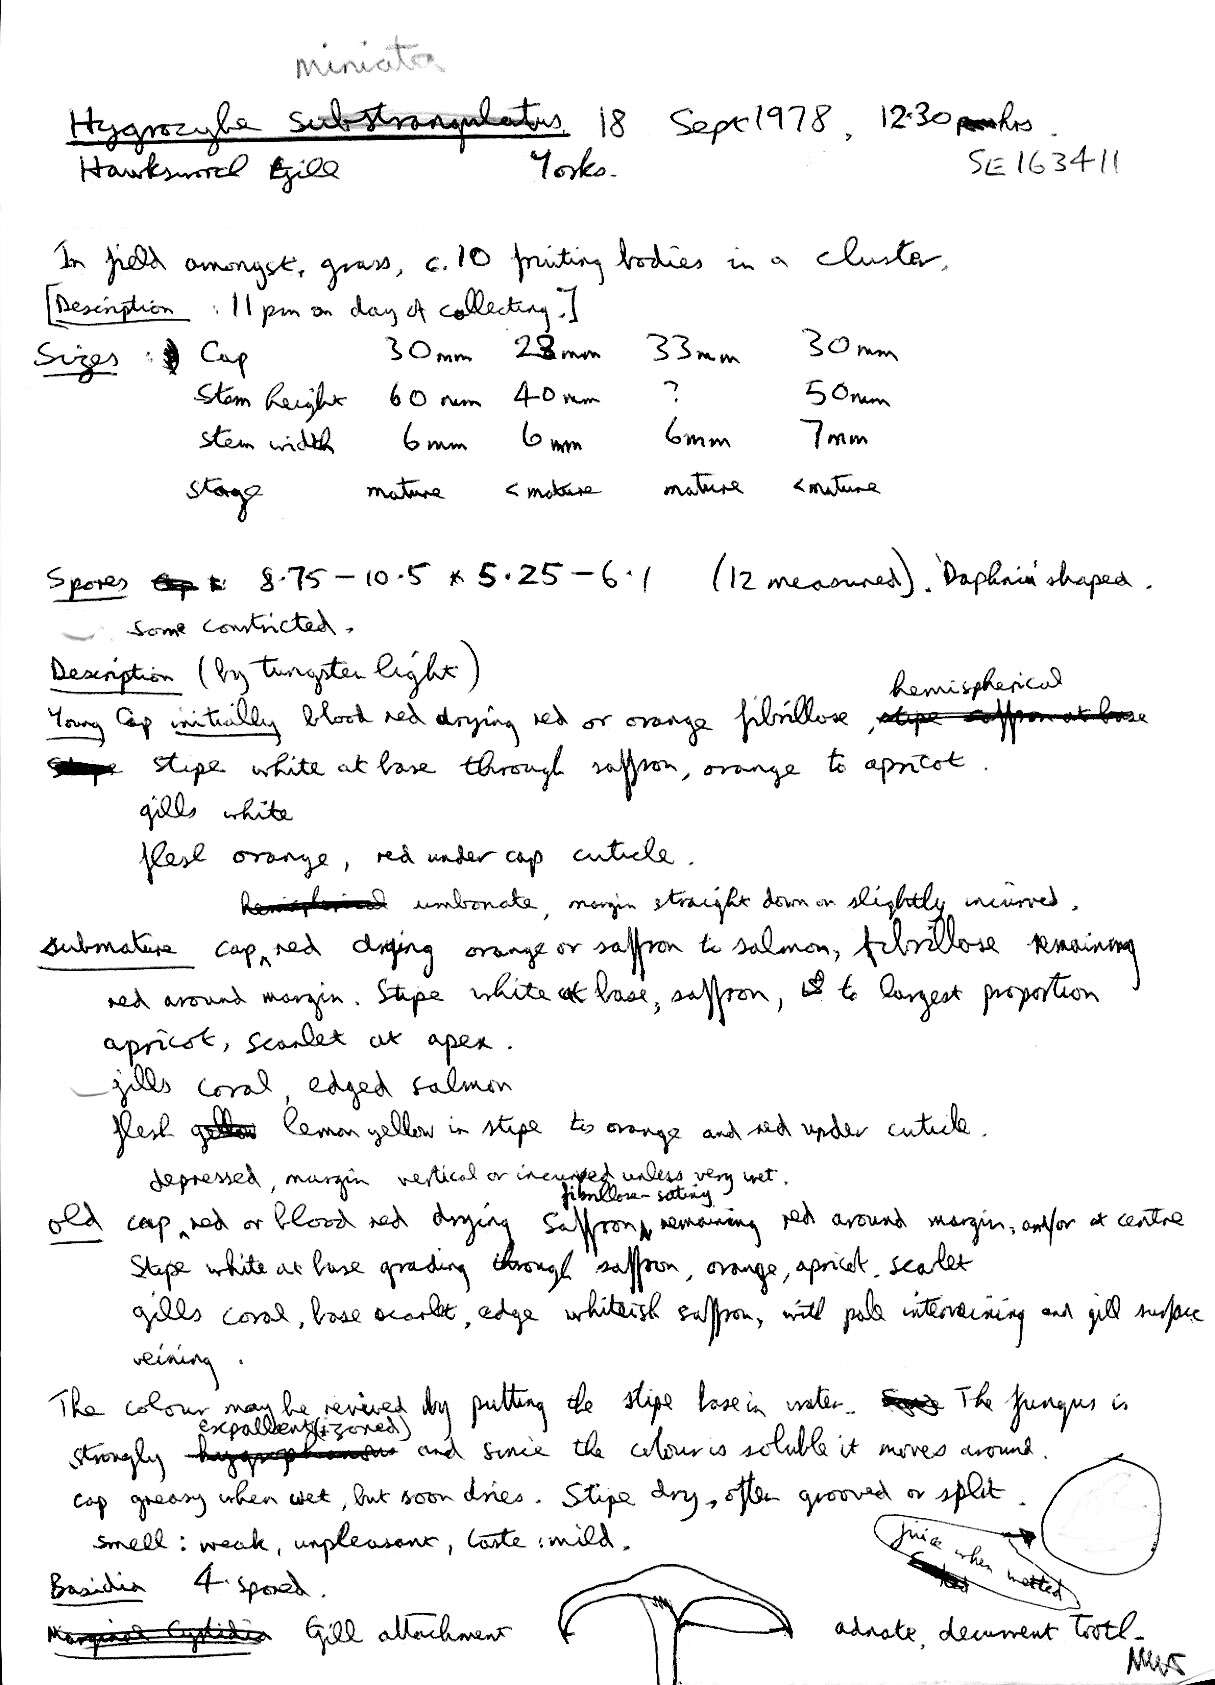 miniata
Hygrocybe substrangulatus 18 Sept 1978, 12.30 hrs.
Hawksword Gill Yorks. SE 163411
In field amongst, grass, c. 10 fruiting bodies in a cluster.
[Description : 11 pm on day of collecting.]
Sizes : Cap 30mm 28mm 33mm 30mm
Stem height 60mm 40mm ? 50mm
stem width 6mm 6mm 6mm 7mm
stage mature < mature mature < mature
Spores 8.75 – 10.5 x 5.25 – 6.1 (12 measured). 'Daphnia' shaped.
some constricted.
Description (by tungsten light)
hemispherical
Young Cap initially blood red drying red or orange fibrillose, stipe saffron at base
Stipe stipe white at base through saffron, orange to apricot.
gills white
flesh orange, red under cap cuticle.
hemispherical umbonate, margin straight down or slightly incurved.
submature cap ‸ red drying orange or saffron to salmon, fibrillose remaining
red around margin. Stipe white at base, saffron, to largest proportion
apricot, scarlet at apex.
gills coral, edged salmon
flesh yellow lemon yellow in stipe to orange and red under cuticle.
depressed, margin vertical or incurved unless very wet.
fibrillose-satiny
old cap ‸ red or blood red drying saffron ‸ remaining red around margin, and/or at centre
Stipe white at base grading through saffron, orange, apricot, scarlet
gills coral, base scarlet, edge whiteish saffron, with pale interveining and gill surface
veining.
The colour may be revived by putting the stipe base in water. The fungus is
expallent (izoned)
strongly hygrophanous and since the colour is soluble it moves around.
cap greasy when wet, but soon dries. Stipe dry, often grooved or split.
smell : weak, unpleasant, taste : mild.
juice when wetted
Basidia 4.spored.
Marginal Cystidia Gill attachment adnate, decurrent tooth.